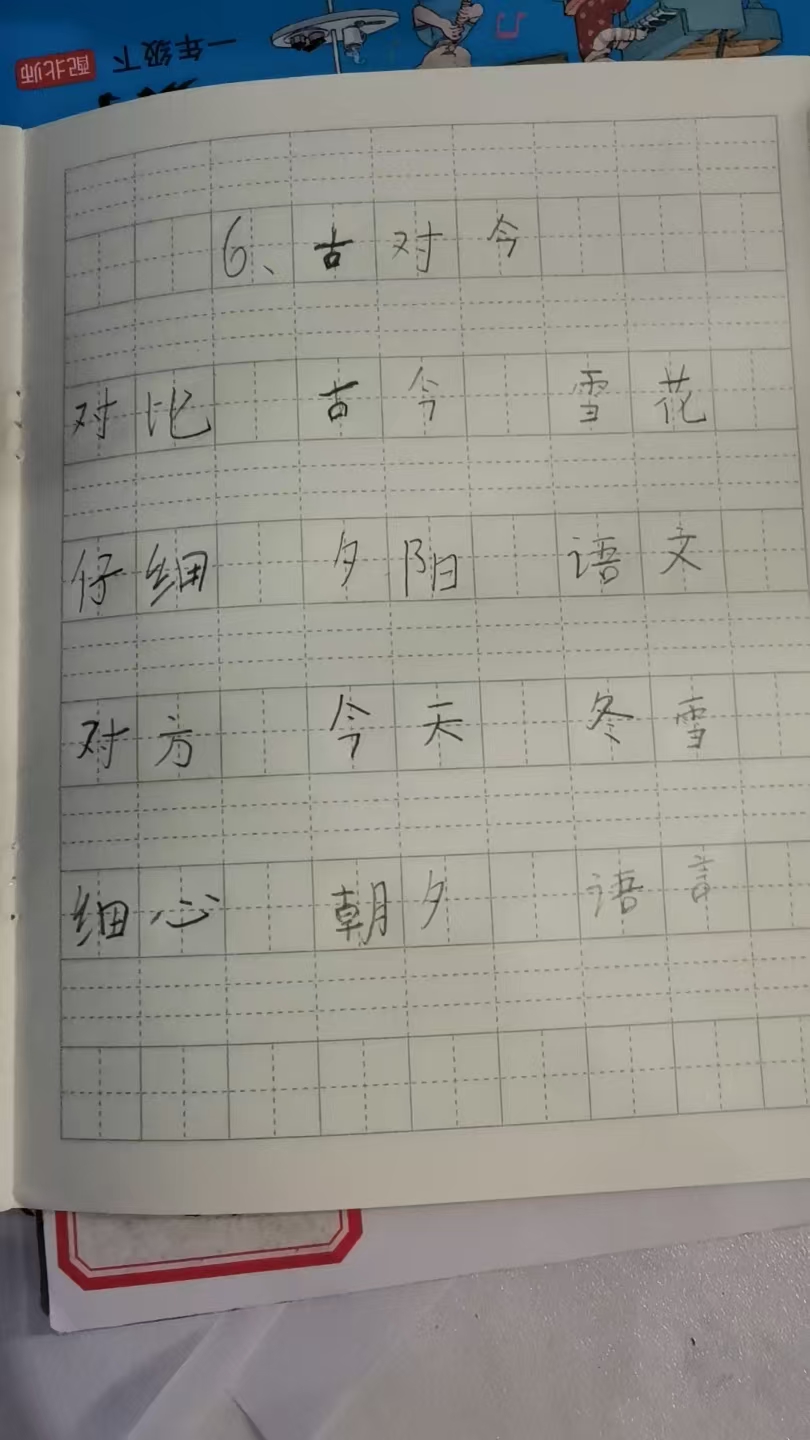 一年级下
配北师
6、古对今
对比 古今 雪花
仔细 夕阳 语文
对方 今天 冬雪
细心 朝夕 语言